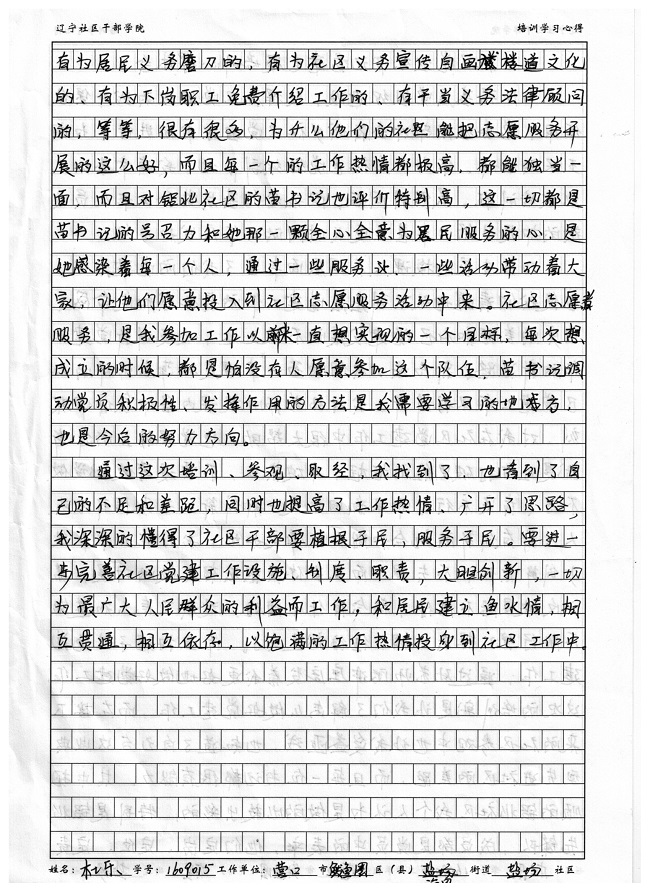 辽宁社区干部学院 培训学习心得
有为居民义务磨刀的、有为社区义务宣传自画楼道文化
的、有为下岗职工免费介绍工作的、有干当义务法律顾问
的,等等,很有很多,为什么他们的社区能把志愿服务开
展的这么好,而且每一个的工作热情都极高,都能独当一
面,而且对铝北社区的苗书记也评价特别高,这一切都是
苗书记的号召力和她那一颗全心全意为居民服务的心,是
她感染着每一个人,通过一些服务,一些活动带动着大
家,让他们愿意投入到社区志愿服务活动中来。社区志愿者
服务,是我参加工作以来一直想实现的一个目标,每次想
成立的时候,都是怕没有人愿意参加这个队伍,苗书记调
动党员积极性、发挥作用的方法是我需要学习的地方,
也是今后的努力方向。
通过这次培训、参观、取经,我找到了,也看到了自
己的不足和差距,同时也提高了工作热情、广开了思路,
我深深的懂得了社区干部要植根于民,服务于民。要进一
步完善社区党建工作设施、制度、职责,大胆创新,一切
为最广大人民群众的利益而工作,和居民建立鱼水情,相
互贯通,相互依存,以饱满的工作热情投身到社区工作中。
姓名:杜乐、学号:1609015工作单位:营口 市鲅鱼圈区(县)盐场街道 盐场 社区